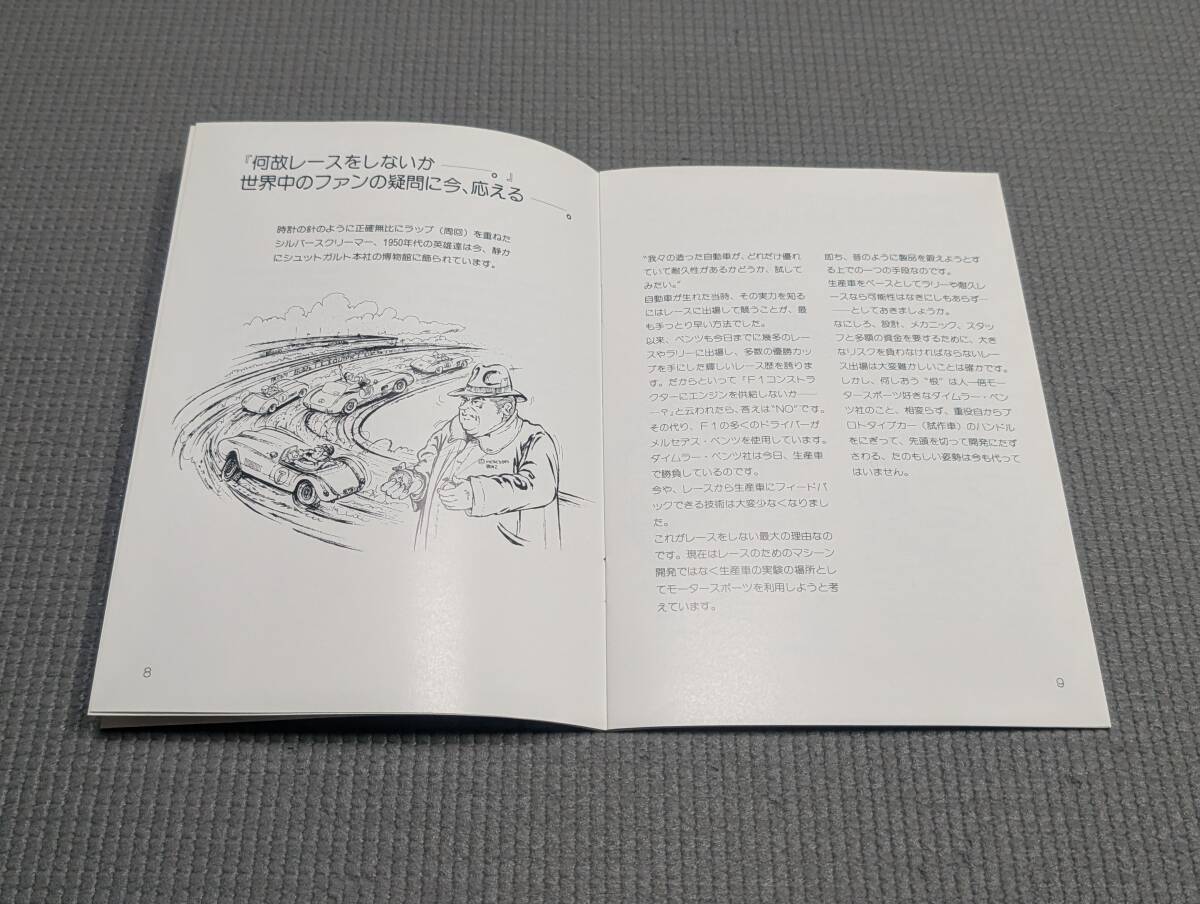 『何故レースをしないか———。』
世界中のファンの疑問に今、応える———。
時計の針のように正確無比にラップ（周回）を重ねた
シルバースクリーマー、1950年代の英雄達は今、静か
にシュットガルト本社の博物館に飾られています。
MERCEDES
BENZ
8
“我々の造った自動車が、どれだけ優れ
ていて耐久性があるかどうか、試して
みたい。”
自動車が生れた当時、その実力を知る
にはレースに出場して競うことが、最
も手っとり早い方法でした。
以来、ベンツも今日までに幾多のレー
スやラリーに出場し、多数の優勝カッ
プを手にした輝しいレース歴を誇りま
す。だからといって「F1コンストラ
クターにエンジンを供給しないか——
——？」と云われたら、答えは“NO”です。
その代り、F1の多くのドライバーが
メルセデス・ベンツを使用しています。
ダイムラー・ベンツ社は今日、生産車
で勝負しているのです。
今や、レースから生産車にフィードバ
ックできる技術は大変少なくなりまし
た。
これがレースをしない最大の理由なの
です。現在はレースのためのマシーン
開発ではなく生産車の実験の場所とし
てモータースポーツを利用しようと考
えています。
即ち、昔のように製品を鍛えようとす
る上での一つの手段なのです。
生産車をベースとしてラリーや耐久レ
ースなら可能性はなきにしもあらず—
——としておきましょうか。
なにしろ、設計、メカニック、スタッ
フと多額の資金を要するために、大き
なリスクを負わなければならないレー
ス出場は大変難かしいことは確かです。
しかし、何しおう“根”は人一倍モー
タースポーツ好きなダイムラー・ベン
ツ社のこと、相変らず、重役自からプ
ロトタイプカー（試作車）のハンドル
をにぎって、先頭を切って開発にたず
さわる、たのもしい姿勢は今も代って
はいません。
9